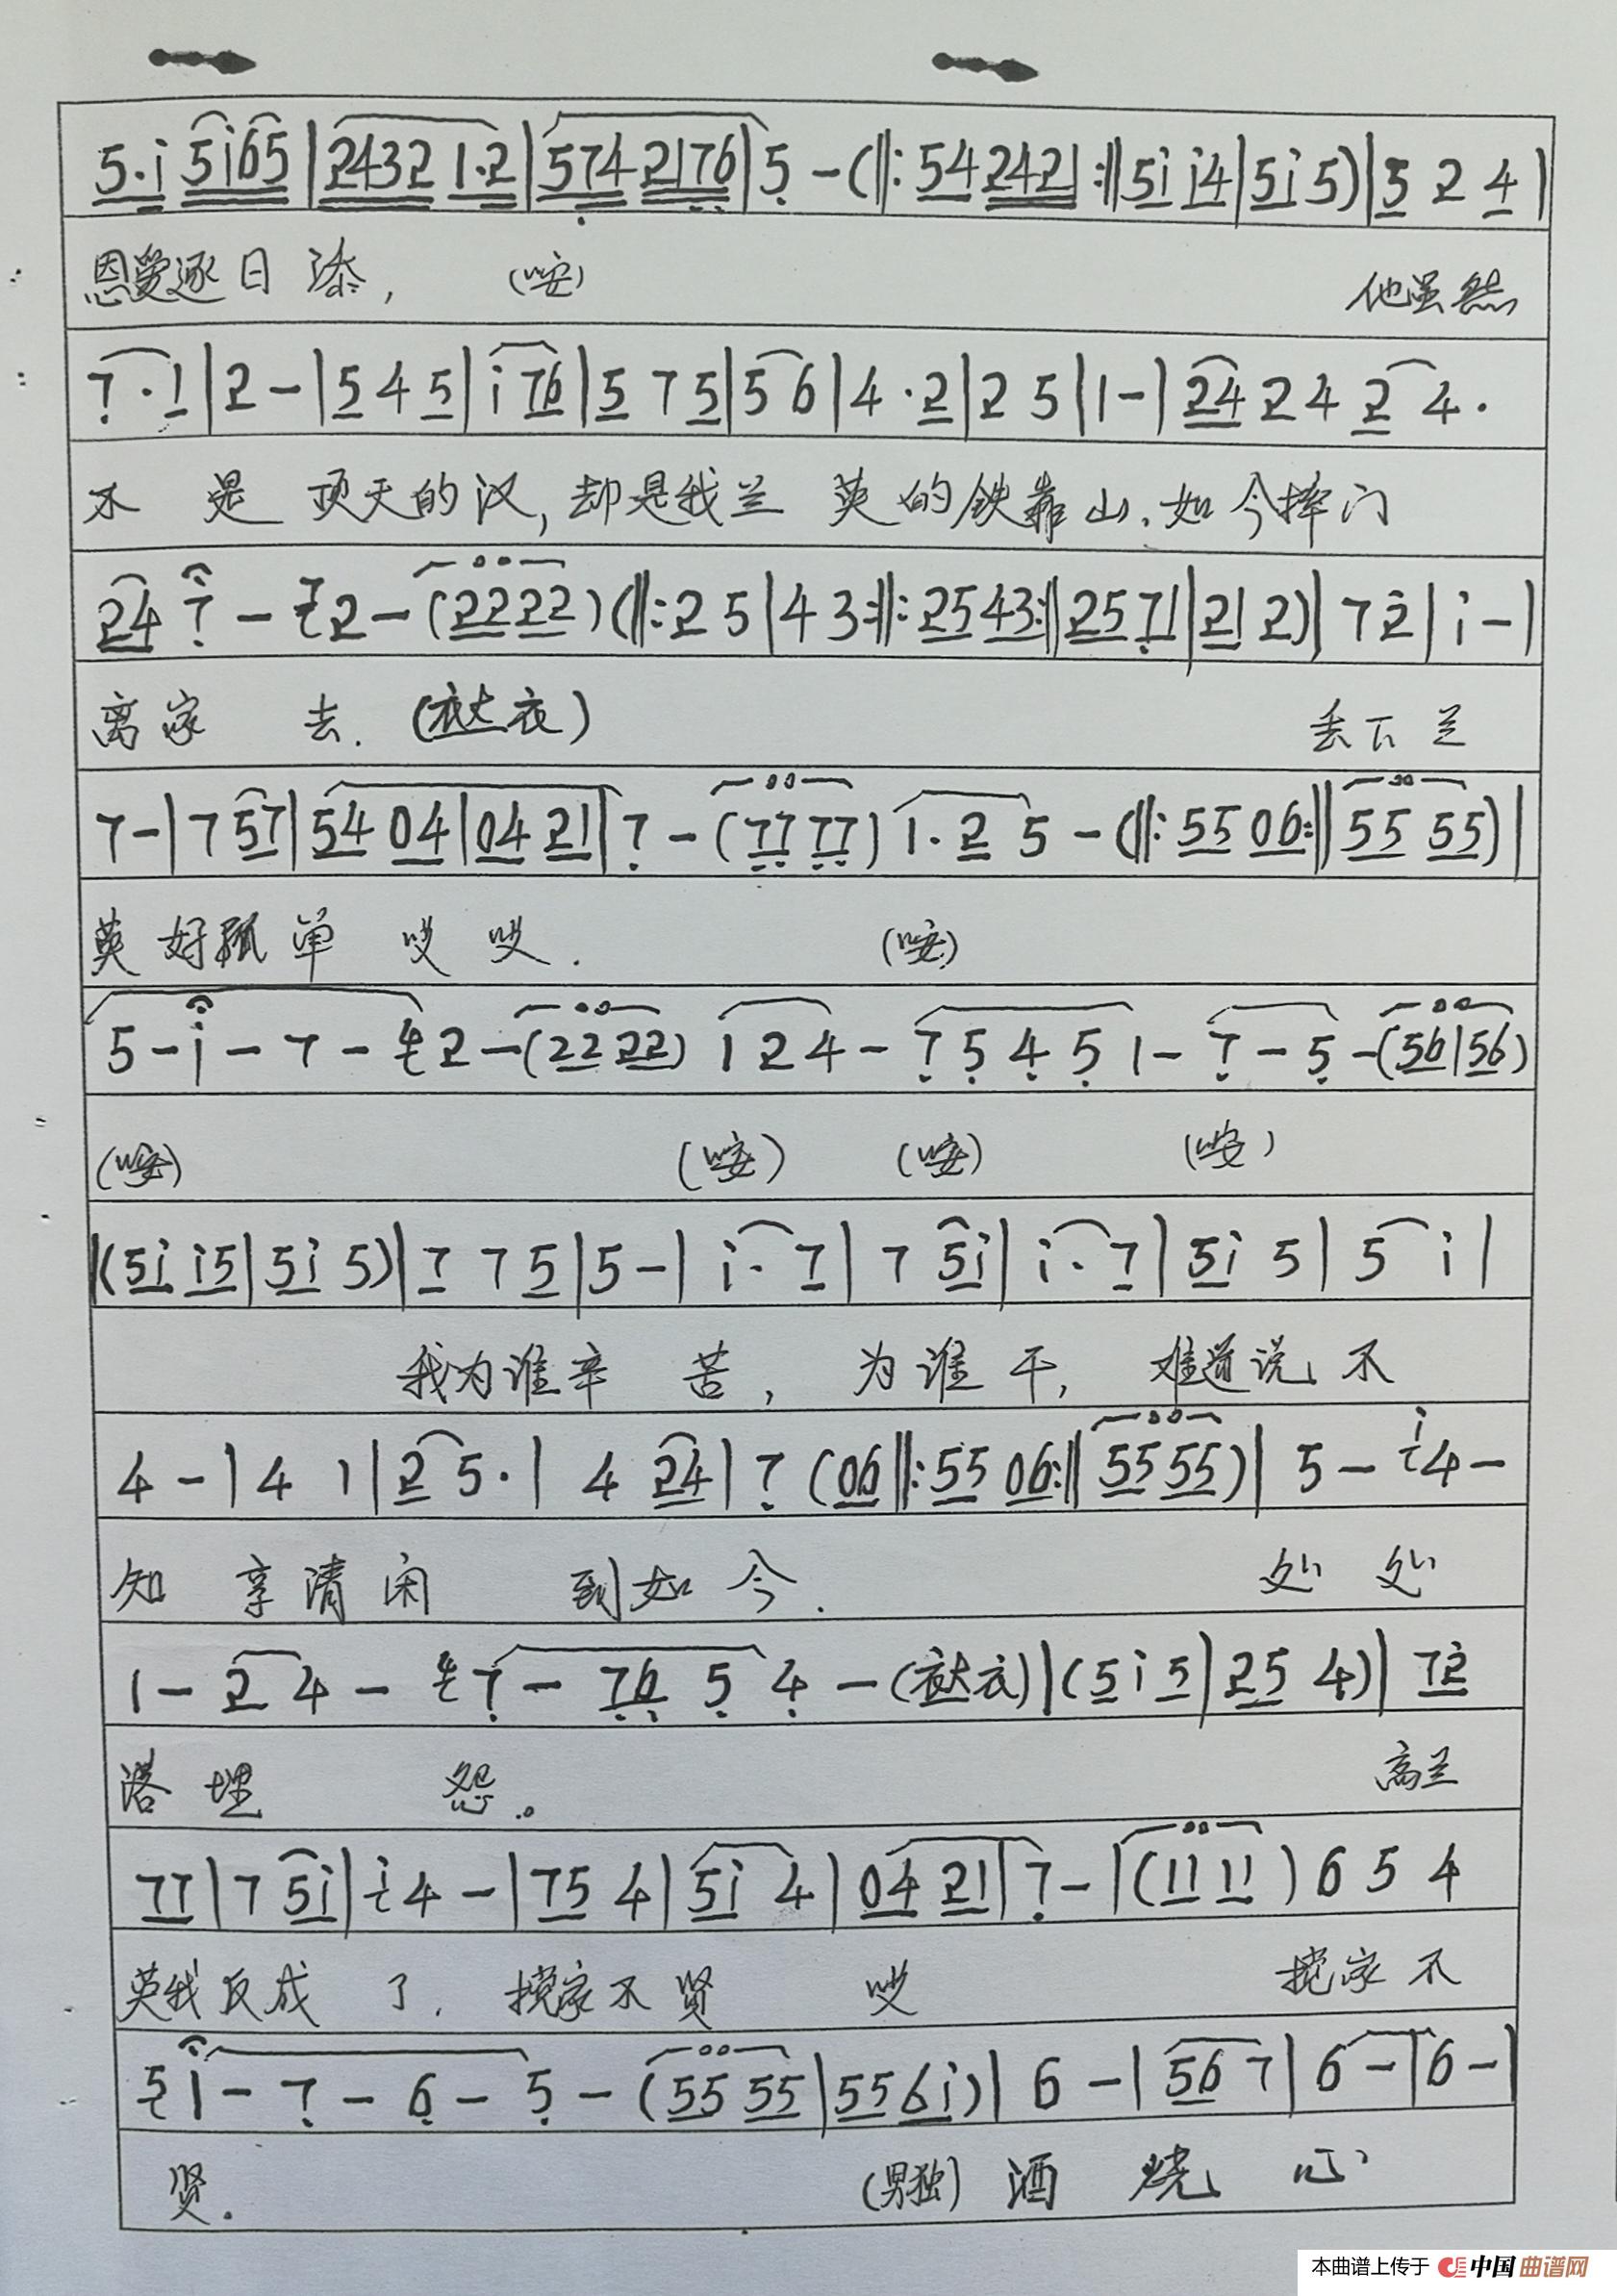 5·i 5i65 | 2432 1·2 | 574 2176 | 5 - (‖: 54 2421 :‖ 5i i4 | 5i 5) | 5 2 4 |
恩爱逐日添, (咹) 他虽然
7·1 | 2 - | 5 4 5 | i 76 | 5 7 5 | 5 6 | 4·2 | 2 5 | 1 - | 24 2 4 2 4·
不 是 顶天的汉,却是我兰 英的铁靠山.如今摔门
24 7 - 7 2 - (2222) (‖: 2 5 | 4 3 :‖: 25 43 :‖ 25 71 | 21 2) | 7 2 | i - |
离家 去. (衣大衣) 丢下兰
7 - | 7 57 | 54 04 | 04 21 | 7 - (77 77) 1·2 5 - (‖: 55 06 :‖ 55 55) |
英好孤单 哎哎. (咹)
5 - i - 7 - 4 2 - (22 22) 1 2 4 - 7 5 4 5 1 - 7 - 5 - (56 | 56)
(咹) (咹) (咹) (咹)
| (5i i5 | 5i 5) | 7 7 5 | 5 - | i·7 | 7 5i | i·7 | 5i 5 | 5 i |
我为谁辛 苦, 为谁干, 难道说不
4 - | 4 1 | 2 5· | 4 24 | 7 (06 ‖: 55 06 :‖ 55 55) | 5 - i 4 -
知 享清闲 到如今. 处处
1 - 2 4 - 4 7 - 76 5 4 - (衣大衣) | (5 i 5 | 25 4) | 72
落埋 怨。 高兰
77 | 7 5i | i 4 - | 75 4 | 5i 4 | 04 21 | 7 - | (11 11) 6 5 4
英我反成 了. 搅家不贤 哎 搅家不
5 i - 7 - 6 - 5 - (55 55 | 55 6i) | 6 - | 56 7 | 6 - | 6 - |
贤. (男独) 酒 烧 心
本曲谱上传于 中国曲谱网